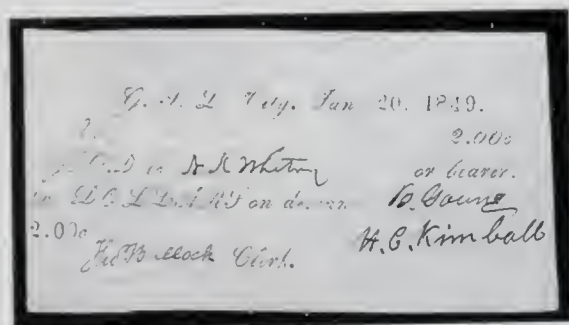 G. S. L. City. Jan 20. 1849.
2.00c
to N K Whitney or bearer.
DOLLARS on B. Young
2.00c H. C. Kimball
Bullock Clerk.